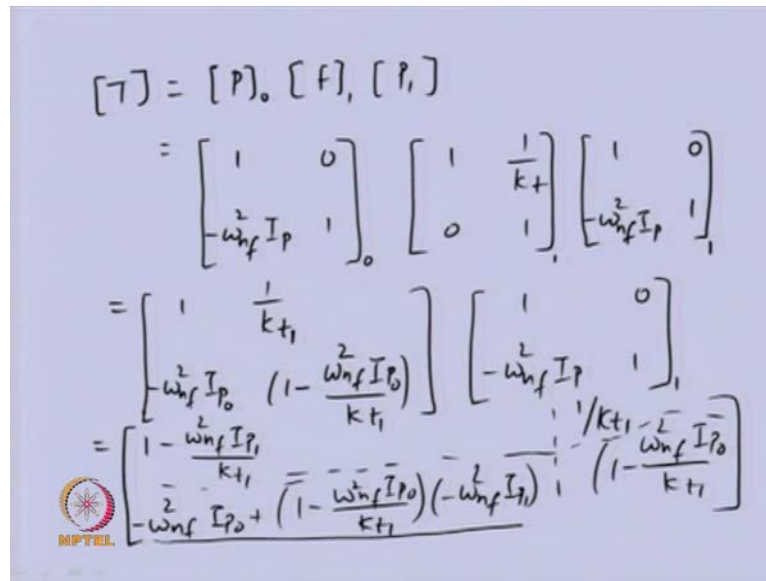 [T] = [P]₀ [F]₁ [P₁]
= [ 1 0 ; -ω²nf Ip 1 ]₀ [ 1 1/kt ; 0 1 ]₁ [ 1 0 ; -ω²nf Ip 1 ]₁
= [ 1 1/kt₁ ; -ω²nf Ip₀ (1 - ω²nf Ip₀/kt₁) ] [ 1 0 ; -ω²nf Ip 1 ]₁
= [ 1 - ω²nf Ip₁/kt₁ 1/kt₁ ; -ω²nf Ip₀ + (1 - ω²nf Ip₀/kt₁)(-ω²nf Ip₁) (1 - ω²nf Ip₀/kt₁) ]
NPTEL